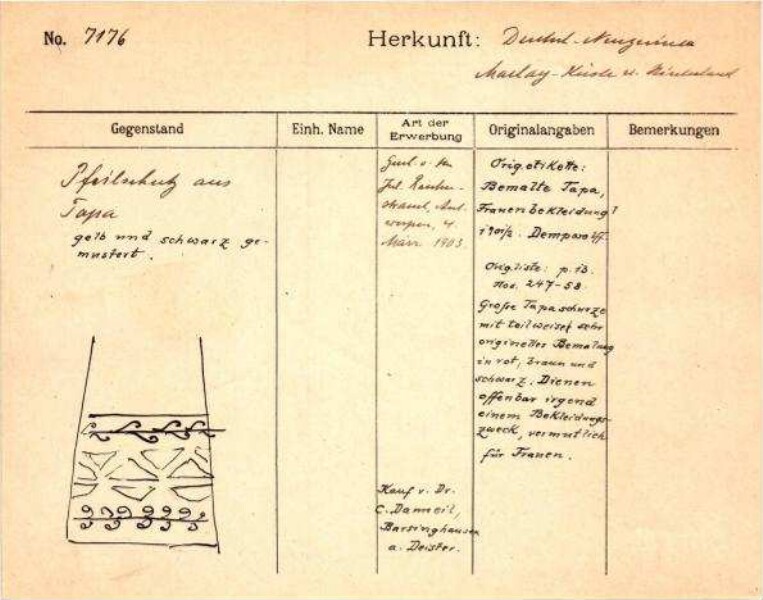 No. 7176
Herkunft: Deutsch-Neuguinea
Maclay-Küste u. Hinterland
Gegenstand
Einh. Name
Art der
Erwerbung
Originalangaben
Bemerkungen
Pfeilschutz aus
Tapa
gelb und schwarz ge-
mustert.
März 1903
Kauf v. Dr.
C. Danneil,
Barsinghausen
a. Deister.
Orig. etikette:
Bemalte Tapa,
Frauenbekleidung?
1901/2. Dempwolff.
Orig. liste: p. 13.
Nos. 247-58.
Große Tapaschurze
mit teilweise sehr
origineller Bemalung
in rot, braun und
schwarz. Dienen
offenbar irgend
einem Bekleidungs-
zweck, vermutlich
für Frauen.